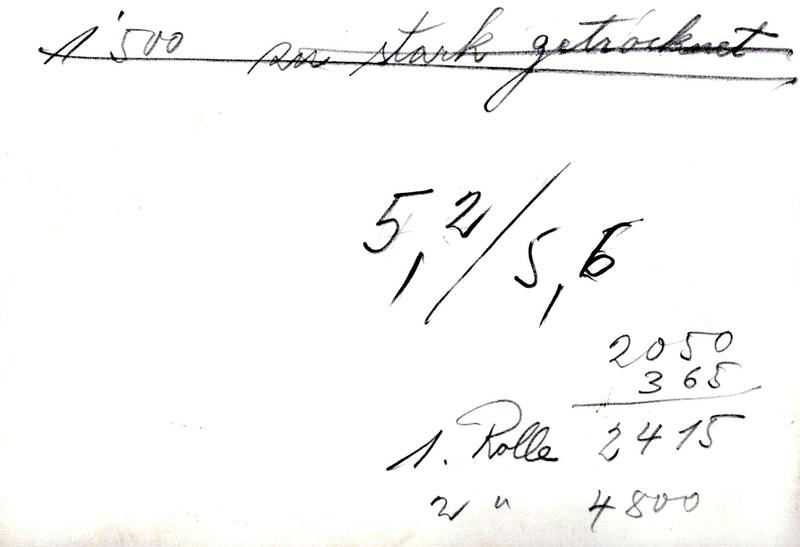 1'500 zu stark getrocknet
5,2/5,6
2050
365
1. Rolle 2415
2 " 4800